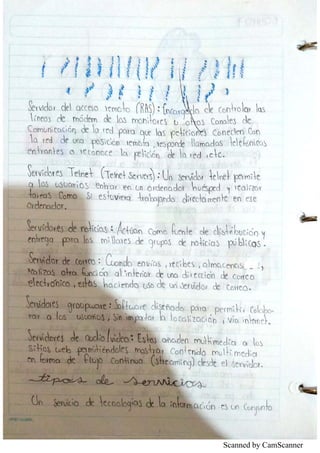 Servidor del acceso remoto (RAS): Encargado de controlar las
líneas de módem de los monitores u otros Canales de
Comunicación de la red para que las peticiones conecten Con
la red de una posición remota, responde llamadas telefónicas
entrantes o reconoce la petición de la red, etc.
Servidores Telnet (Telnet Servers): Un servidor telnet permite
a los usuarios entrar en un ordenador huésped y realizar
tareas Como si estuviera trabajando directamente en ese
Ordenador.
Servidores de noticias: Actúan como fuente de distribución y
entrega para los millares de grupos de noticias públicas.
Servidor de correo: Cuando envías, recibes, almacenas,
realizas otra función al interior de una dirección de correo
electrónico, estás haciendo uso de un servidor de Correo.
Servidores groupware: Software diseñado para permitir colabo-
rar a los usuarios, Sin importar la localización, vía internet.
Servidores de audio/video: Estos añaden multimedia a los
sitios web permitiéndoles mostrar Contenido multimedia
en forma de flujo Continuo (streaming) desde el servidor.
tipos de servicios
Un servicio de tecnologías de la información es un Conjunto
Scanned by CamScanner